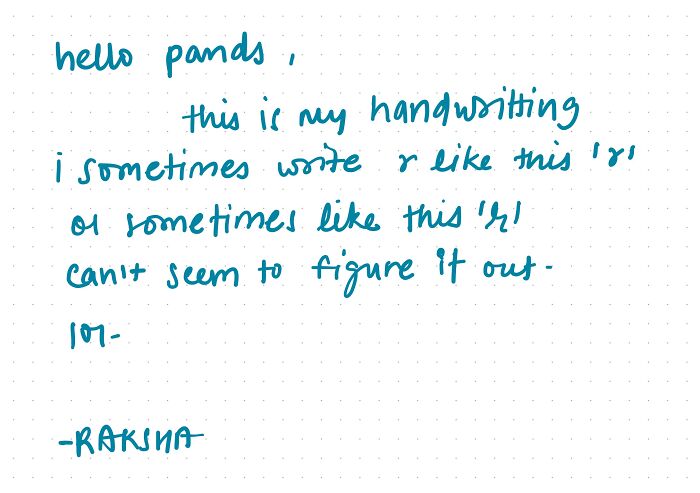 hello pands,
this is my handwritting
i sometimes write r like this 'r'
or sometimes like this 'r'
can't seem to figure it out-
lol-
-RAKSHA